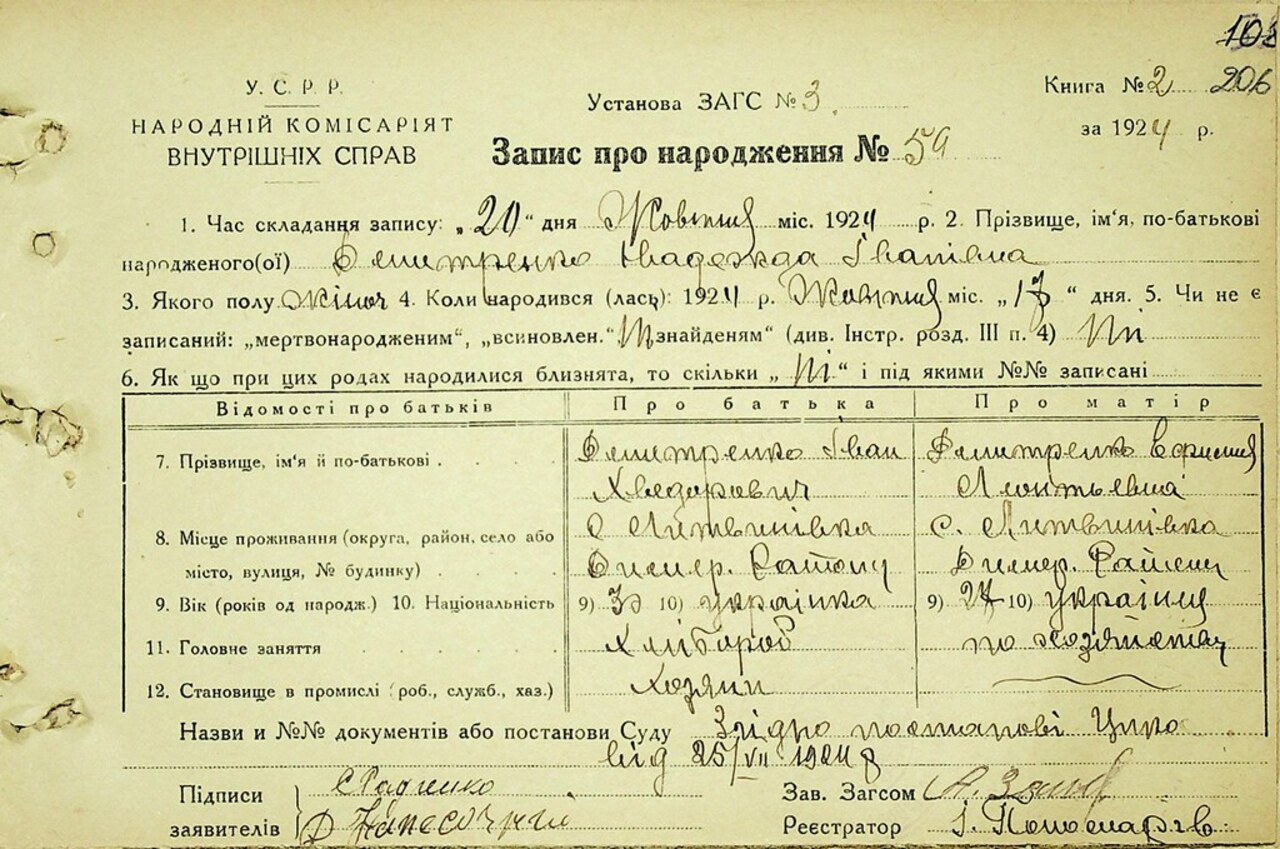 103
У. С. Р. Р.
НАРОДНІЙ КОМІСАРІЯТ
ВНУТРІШНІХ СПРАВ
Установа ЗАГС № 3
Книга № 2 206
за 1924 р.
Запис про народження № 59
1. Час складання запису: „20“ дня Жовтня міс. 1924 р. 2. Прізвище, ім'я, по-батькові
народженого(ої) Дмитренко Надежда Іванівна
3. Якого полу жіноч 4. Коли народився (лась): 1924 р. Жовтня міс. „17“ дня. 5. Чи не є
записаний: „мертвонародженим“, „всиновлен.“ знайденям“ (див. Інстр. розд. III п. 4) Ні
6. Як що при цих родах народилися близнята, то скільки „Ні“ і під якими №№ записані
Відомості про батьків Про батька Про матір
7. Прізвище, ім'я й по-батькові Дмитренко Іван Дмитренко
Хведорович Леонтьевна
8. Місце проживання (округа, район, село або с. Литвинівка с. Литвинівка
місто, вулиця, № будинку) Димер. Району Димер. Району
9. Вік (років од народж.) 10. Національність 9) 10) українка 9) 10) україния
11. Головне заняття Хлібороб по хозяйству
12. Становище в промислі (роб., служб., хаз.) Хозяин
Назви и №№ документів або постанови Суду Згідно постанові
від 25/VII 1924 р
Підписи
заявителів
Зав. Загсом
Реєстратор